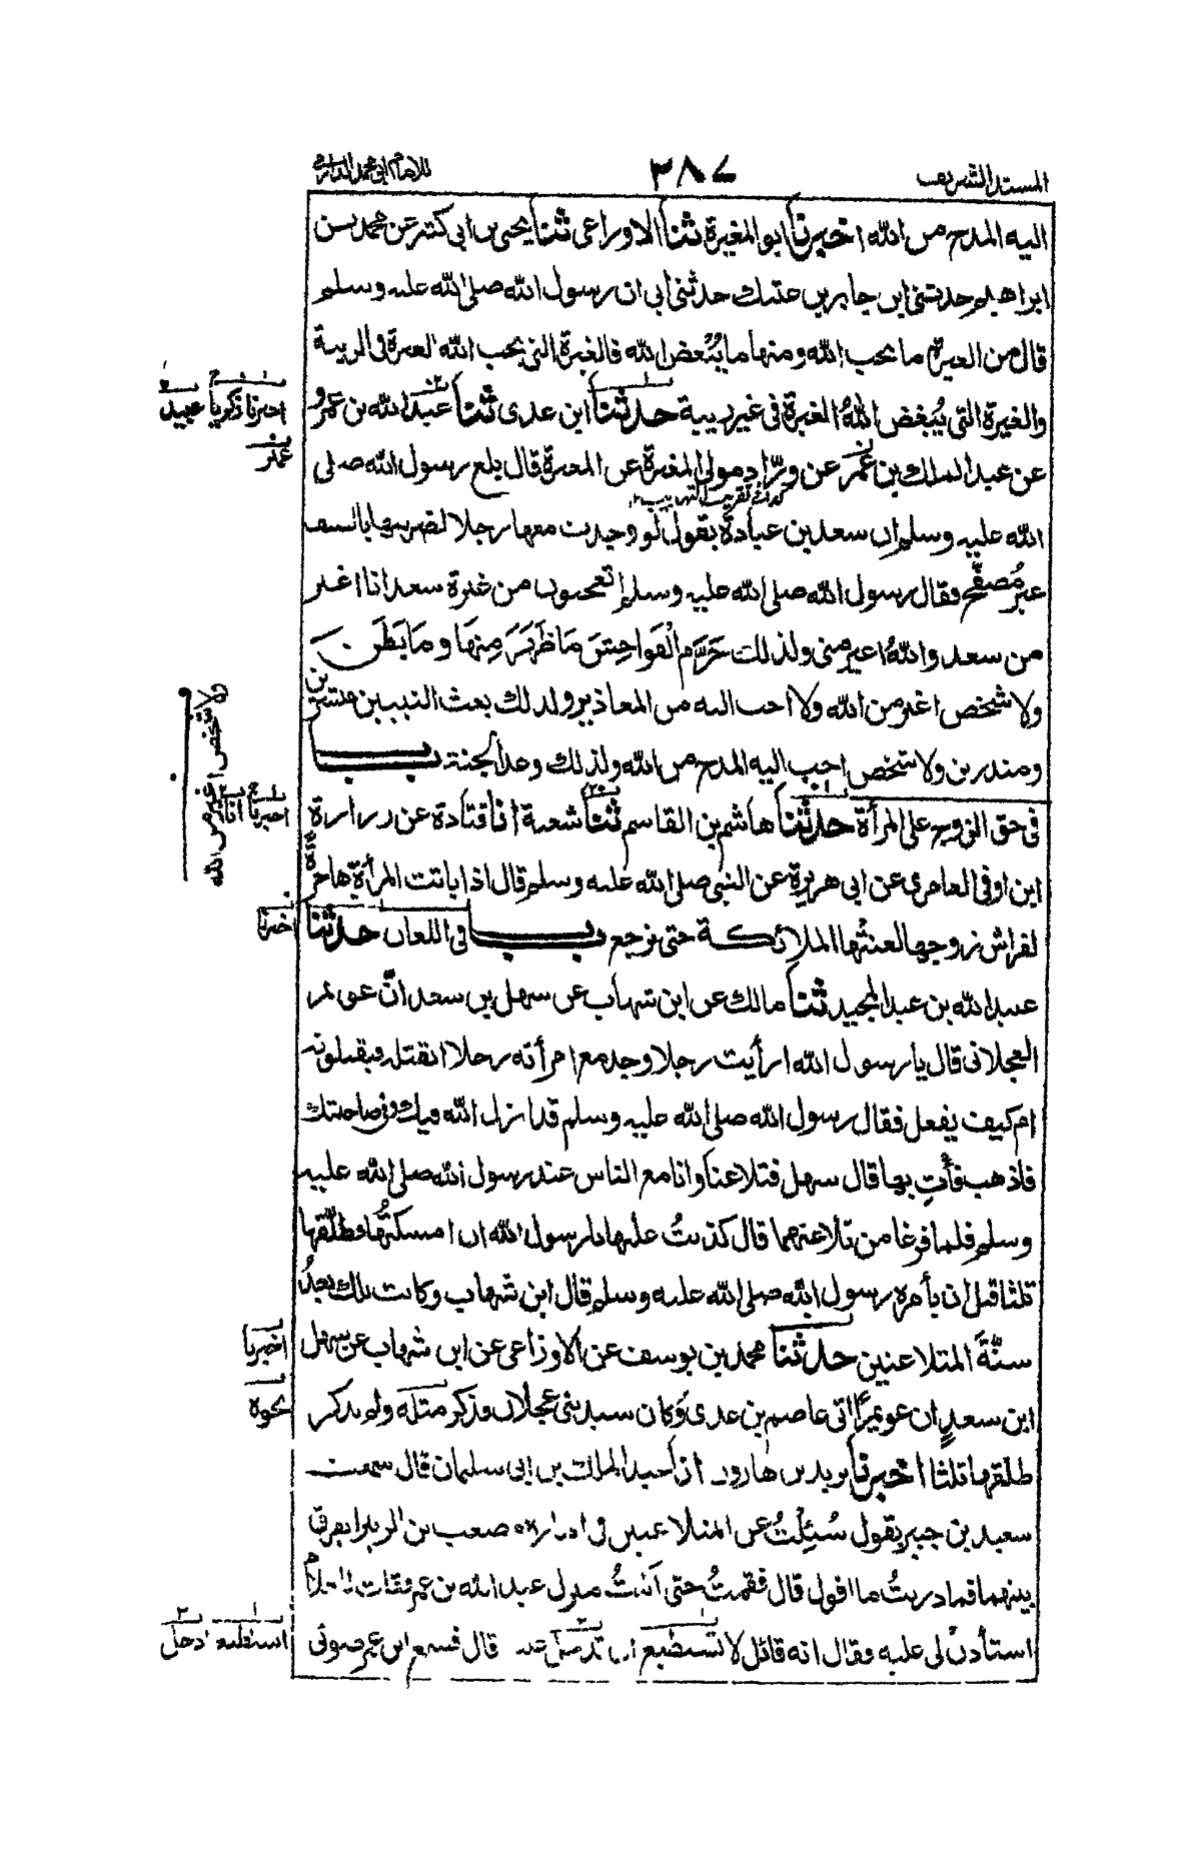 المسند الشريف
٣٨٧
للامام ابى محمد الدارمى
اليه المدح من الله اخبرنا ابو المغيرة ثنا الاوزاعى ثنا يحيى بن ابى كثير عن محمد بن
ابراهيم حدثنى ابن جابر بن عتيك حدثنى ابى ان رسول الله صلى الله عليه وسلم
قال من الغيرة ما يحب الله ومنها ما يُبْغض الله فالغيرة التى يحب الله الغيرة فى الريبة
والغيرة التى يُبغض اللهُ الغيرة فى غير ريبة حدثنا ابن عدى ثنا عبد الله بن عمرو
عن عبد الملك بن عمر عن ورّاد مولى المغيرة عن المغيرة قال بلغ رسول الله صلى
كذا فى تقريب التهذيب
الله عليه وسلم ان سعد بن عبادة يقول لو وجدت معها رجلا لضربتها بالسيف
غير مُصفّح فقال رسول الله صلى الله عليه وسلم اتعجبون من غيرة سعد انا اغير
من سعد واللهُ اغير منى ولذلك حَرَّم الْفَوَاحِشَ مَا ظَهَرَ مِنْهَا وَمَا بَطَنَ
ولا شخص اغير من الله ولا احب اليه من المعاذير ولذلك بعث النبيين مبشرين
ومنذرين ولا شخص احب اليه المدح من الله ولذلك وعد الجنة باب
فى حق الزوج على المرأة حدثنا هاشم بن القاسم ثنا شعبة انا قتادة عن زرارة
ابن اوفى العامرى عن ابى هريرة عن النبى صلى الله عليه وسلم قال اذا باتت المرأة هاجرة
لفراش زوجها لعنتْها الملائكة حتى ترجع باب فى اللعان حدثنا
عبيد الله بن عبد المجيد ثنا مالك عن ابن شهاب عن سهل بن سعد انّ عويمر
العجلانى قال يا رسول الله ارأيت رجلا وجد مع امرأته رجلا ايقتله فيقتلونه
ام كيف يفعل فقال رسول الله صلى الله عليه وسلم قد انزل الله فيك وفى صاحبتك
فاذهب فأتِ بها قال سهل فتلاعنا وانا مع الناس عند رسول الله صلى الله عليه
وسلم فلما فرغا من تلاعنهما قال كذبتُ عليها يا رسول الله ان امسكتُها فطلّقها
ثلثا قبل ان يأمره رسول الله صلى الله عليه وسلم قال ابن شهاب وكانت تلك بعدُ
سنّةَ المتلاعنين حدثنا محمد بن يوسف عن الاوزاعى عن ابن شهاب عن سهل
ابن سعدٍ ان عويمرًا اتى عاصم بن عدى وَكان سيد بنى عجلان فذكر مثله ولم يذكر
طلقها ثلثا اخبرنا يزيد بن هارون انا عبد الملك بن ابى سليمان قال سمعت
سعيد بن جبير يقول سُئِلْتُ عن المتلاعنين فى امارة مصعب بن الزبير ايفرق
بينهما فما دريتُ ما اقول قال فقمتُ حتى اتيتُ منزل عبد الله بن عمر فقلت للغلام
استأذنْ لى عليه فقال انه قائل لا تستطيع ان تدخل عليه قال فسمع ابن عمر صوتى
اخبرنا زكريا عبيد
عمير
ولا شخص اغير من الله
اخبرنا انا
اخبرنا
اخبرنا
نحوه
استطيع ادخل